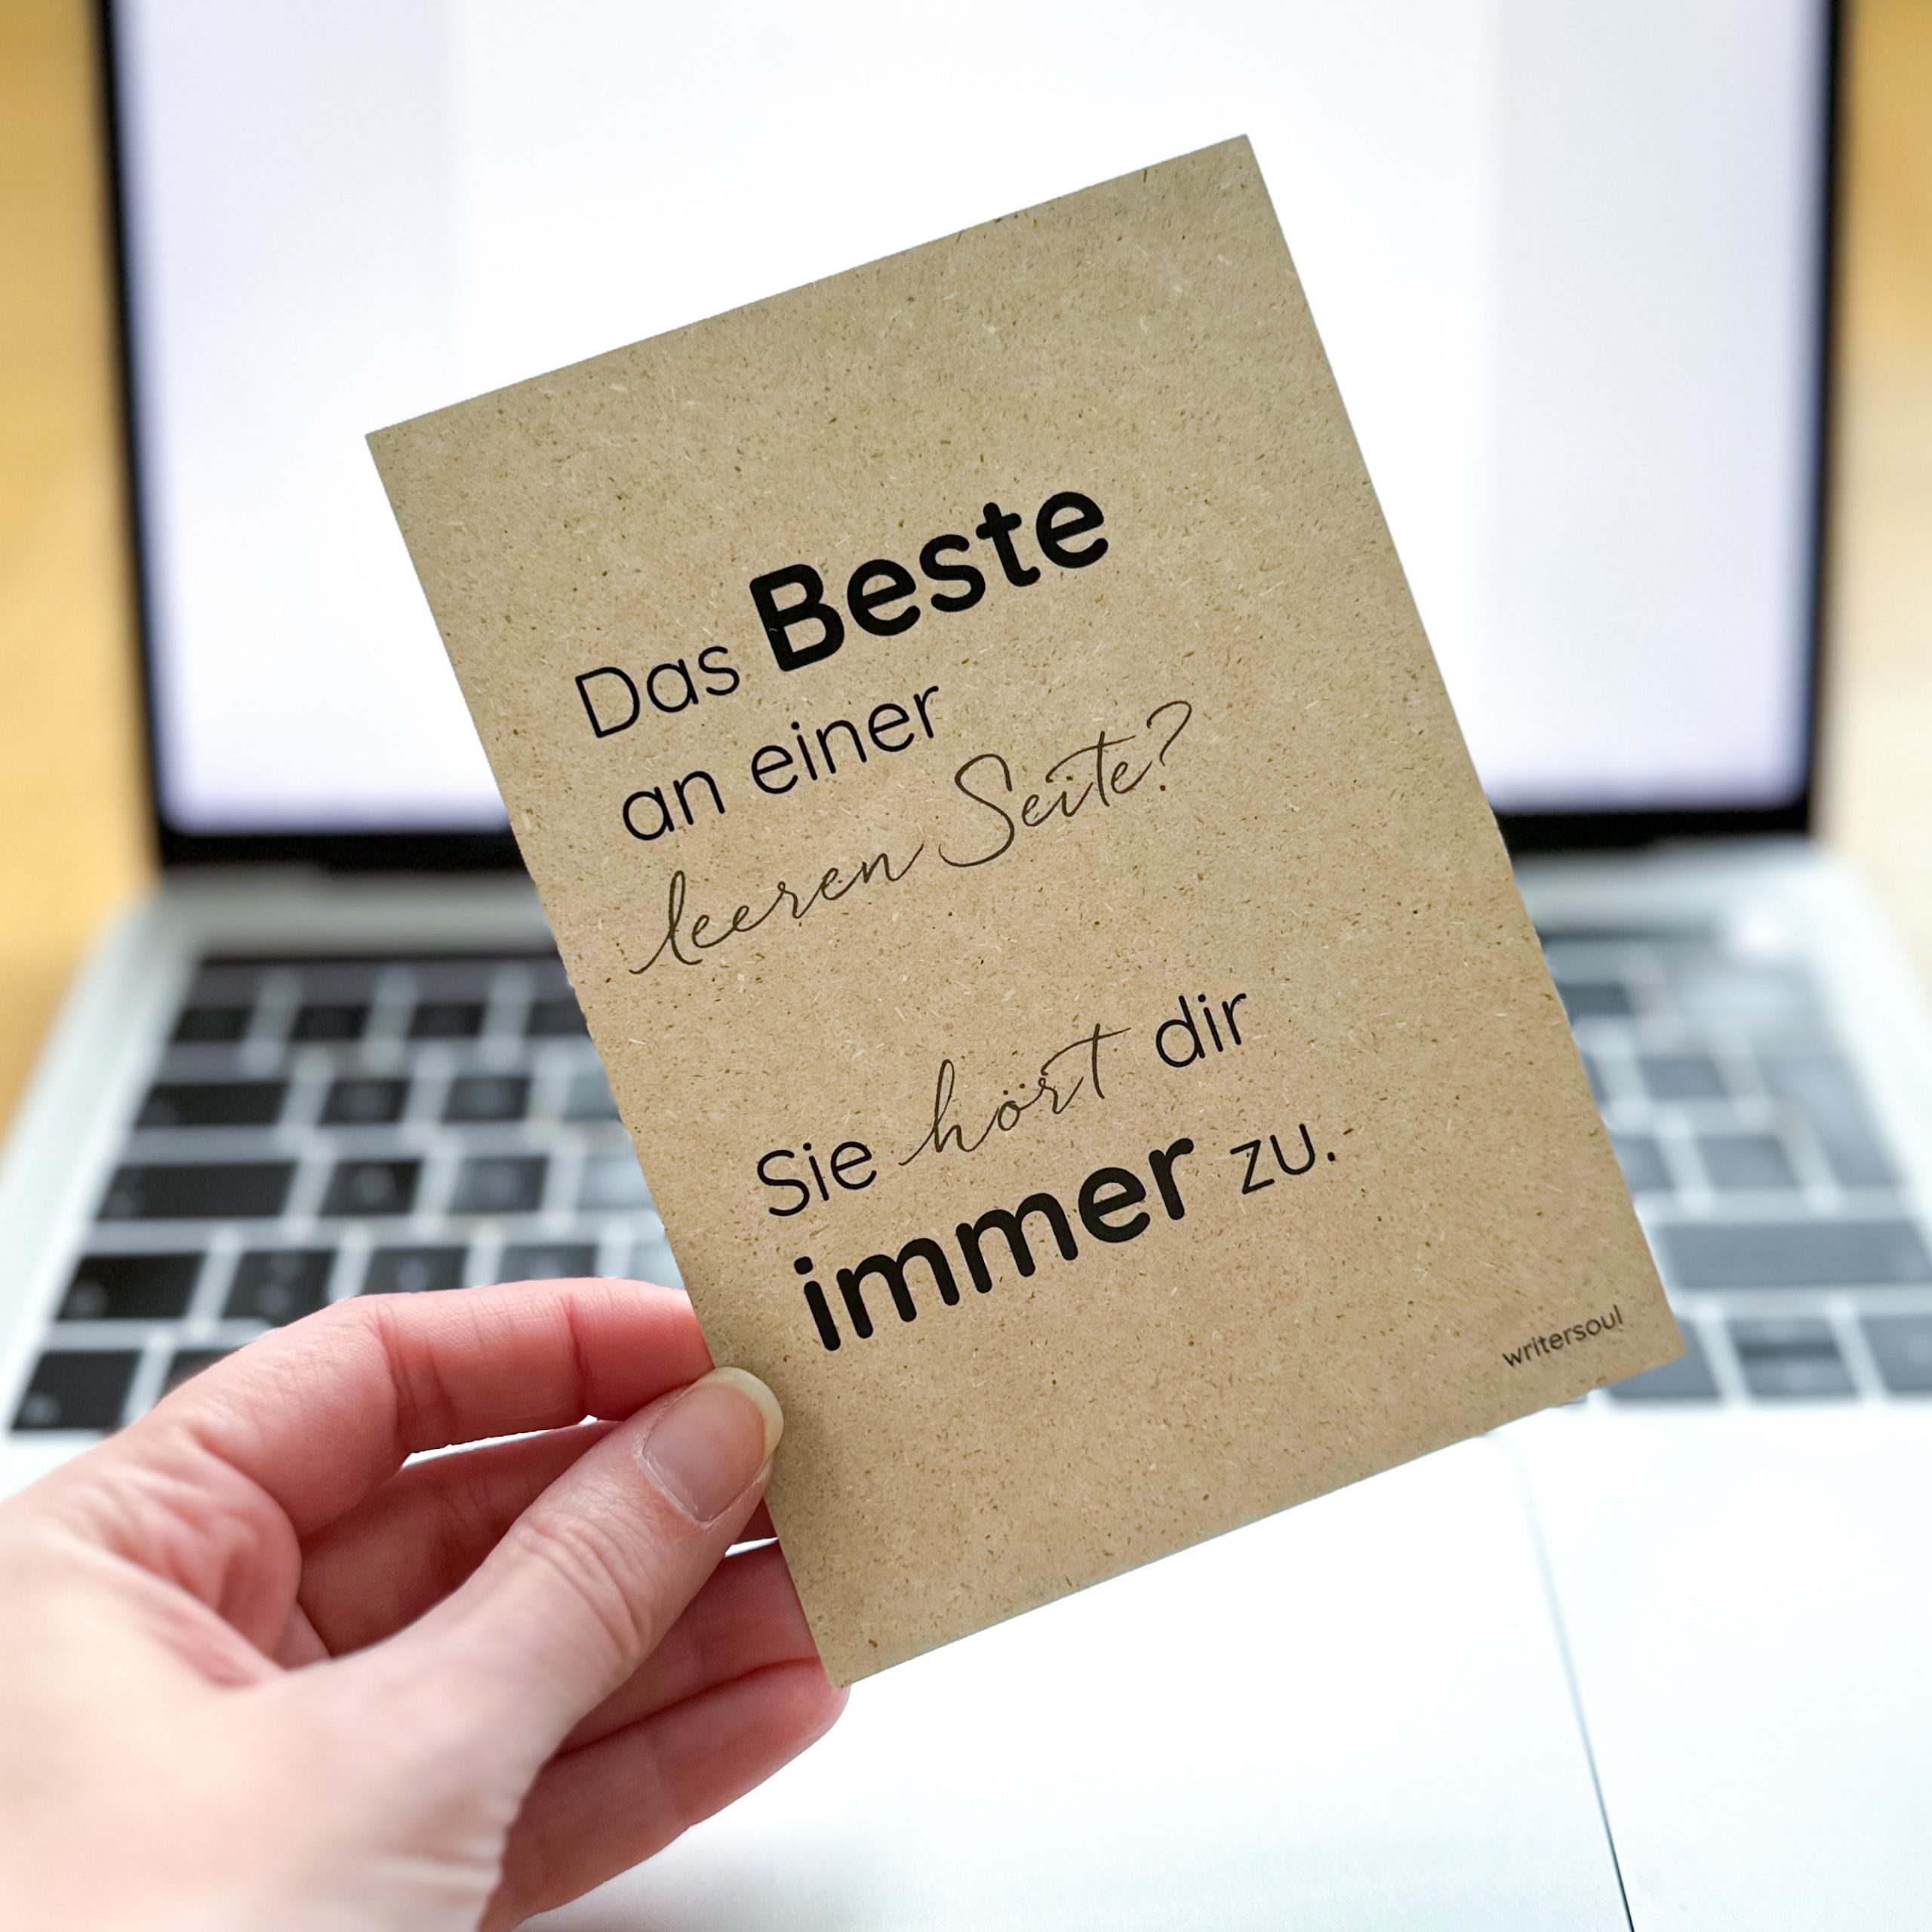 Das Beste
an einer
leeren Seite?
Sie hört dir
immer zu.
writersoul